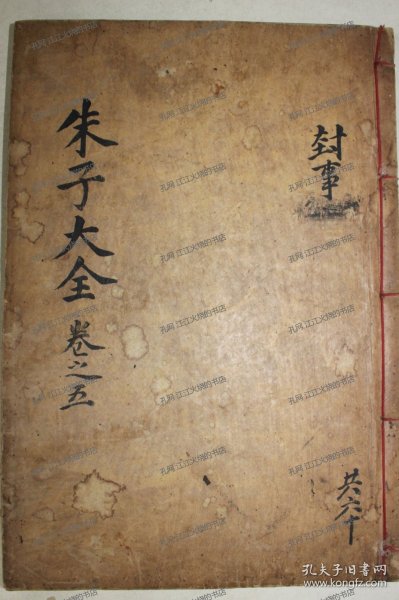 封事
共六十
朱子大全 卷之五
孔网 江江火烧的书店
孔夫子旧书网
www.kongfz.com